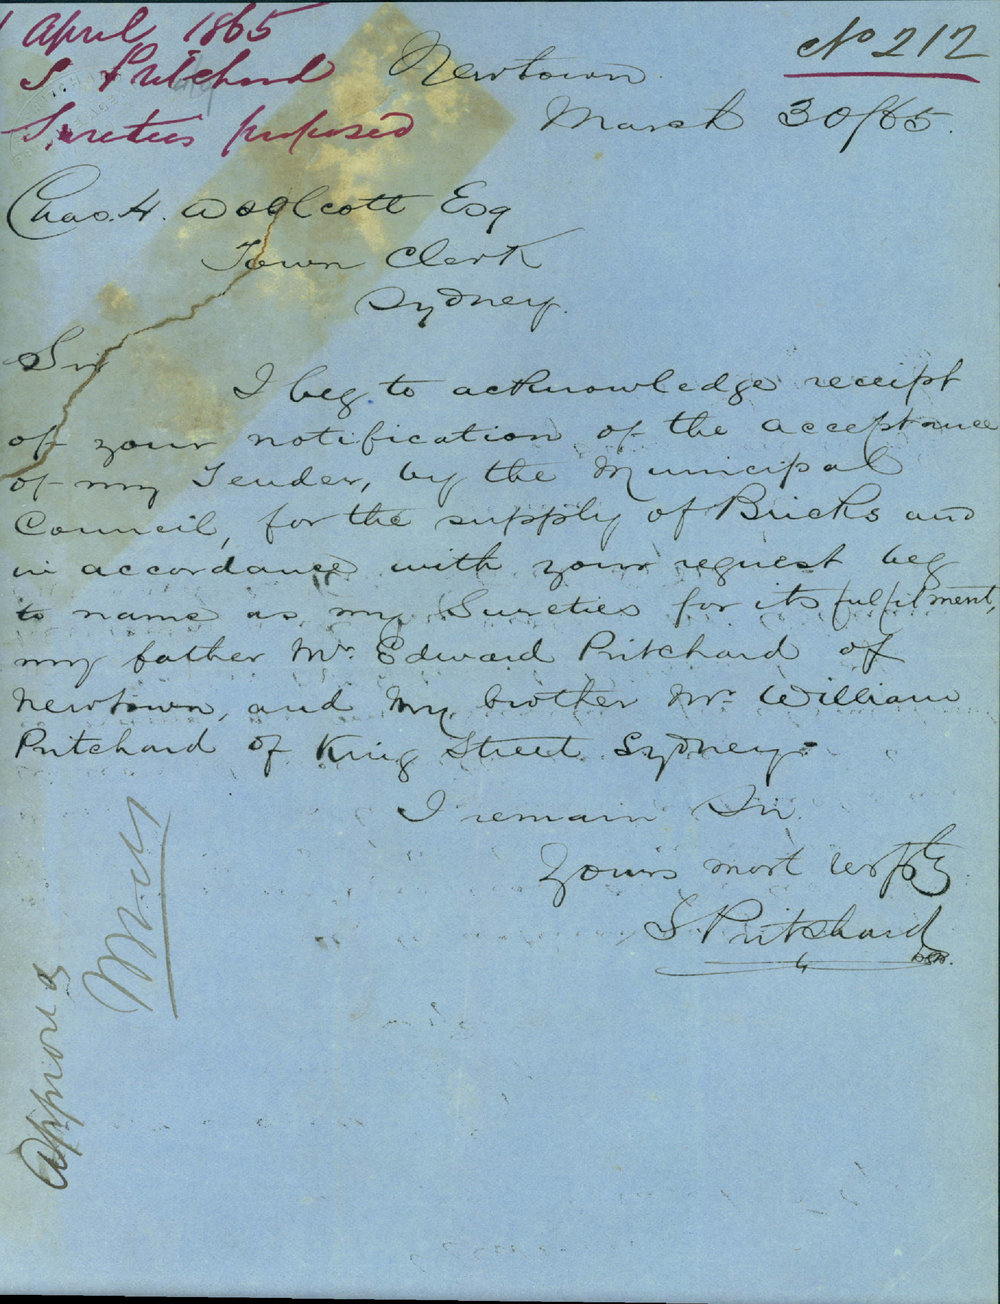 1 April 1865
S Pritchard
Sureties proposed
No 212
Newtown
March 30/65.
Chas. H. Woolcott Esq
Town Clerk
Sydney.
Sir
I beg to acknowledge receipt
of your notification of the acceptance
of my Tender, by the Municipal
Council, for the supply of Bricks and
in accordance with your request beg
to name as my Sureties for its fulfilment,
my father Mr. Edward Pritchard of
Newtown, and My brother Mr. William
Pritchard of King Street Sydney.
I remain Sir.
Yours most respty
S. Pritchard
Approved